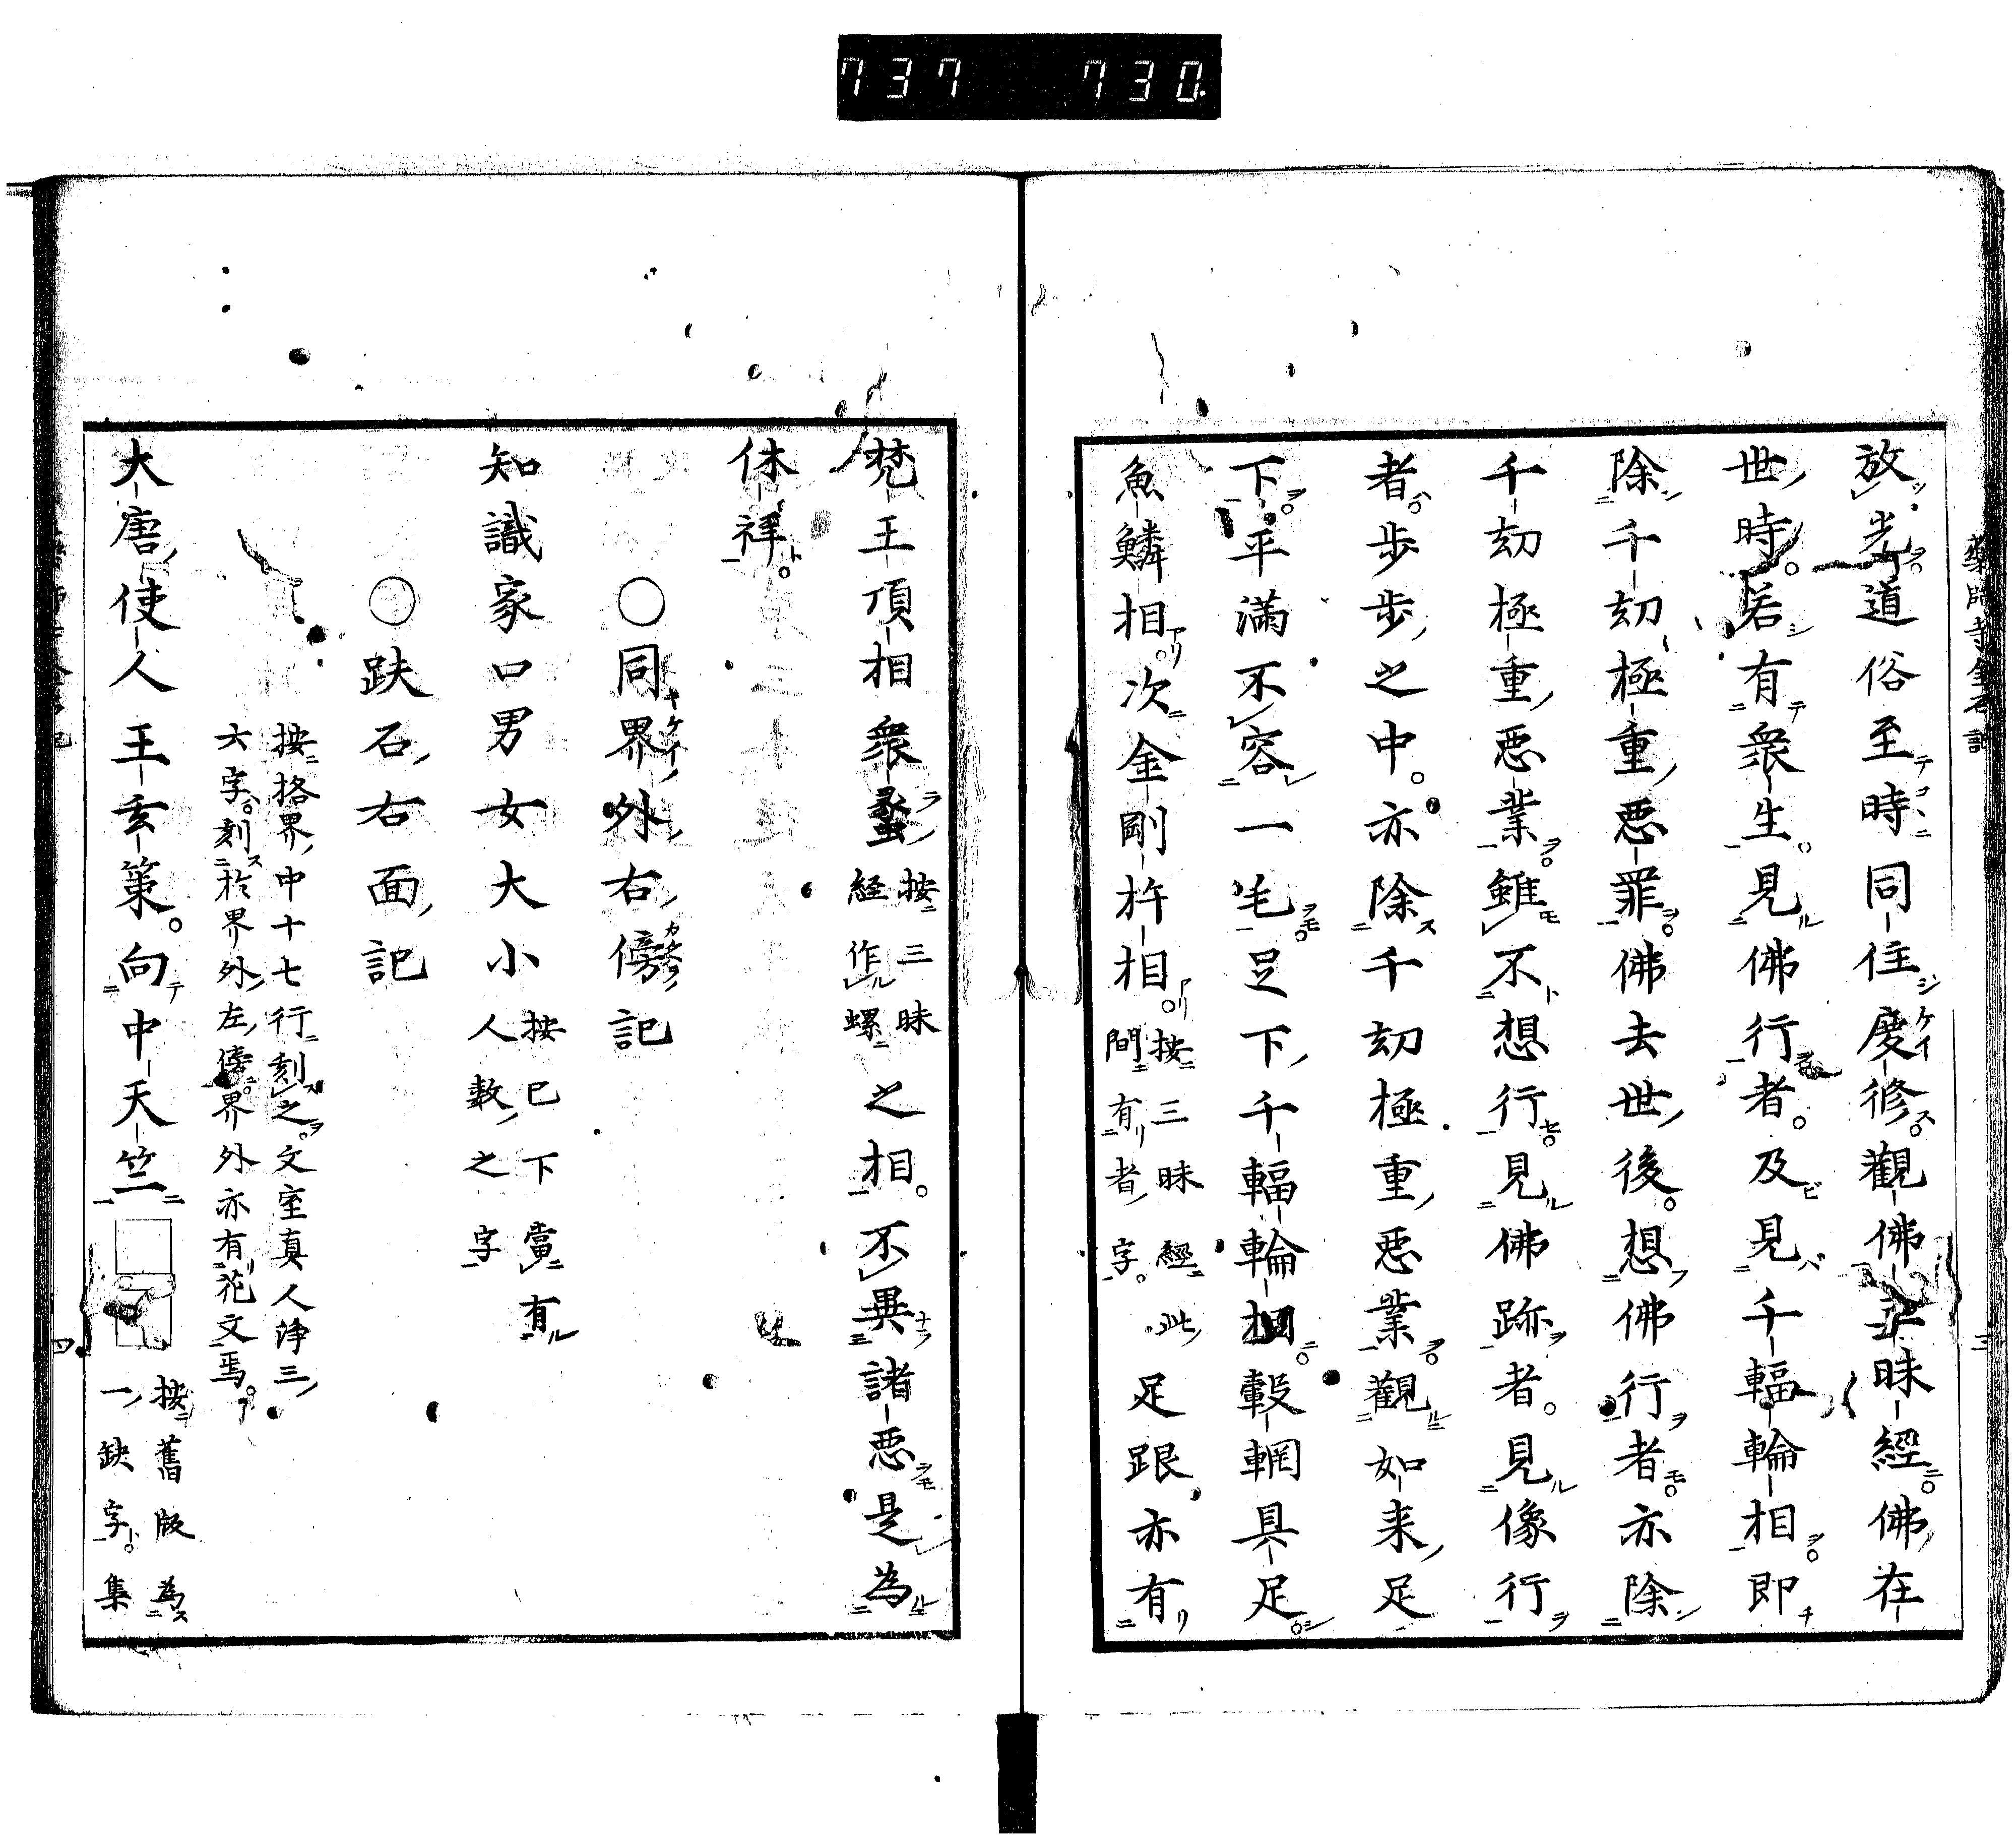 737 730
放光道俗至時同住慶修觀佛三昧經佛在
世時若有衆生見佛行者及見千輻輪相即
除千劫極重惡罪佛去世後想佛行者亦除
千劫極重惡業雖不想行見佛跡者見像行
者步步之中亦除千劫極重惡業觀如来足
下平滿不容一毛足下千輻輪相轂輞具足
魚鱗相次金剛杵相
按三昧經此
間有者字
足跟亦有
梵王頂相衆蠡
按三昧
経作螺
之相不異諸惡是為
休祥
○同界外右傍記
知識家口男女大小
按已下當有
人數之字
○趺石右面記
按挌界中十七行刻之文室真人浄三
六字刻於界外左傍界外亦有花文焉
大唐使人王玄策向中天竺□□
按舊版為
一缺字集